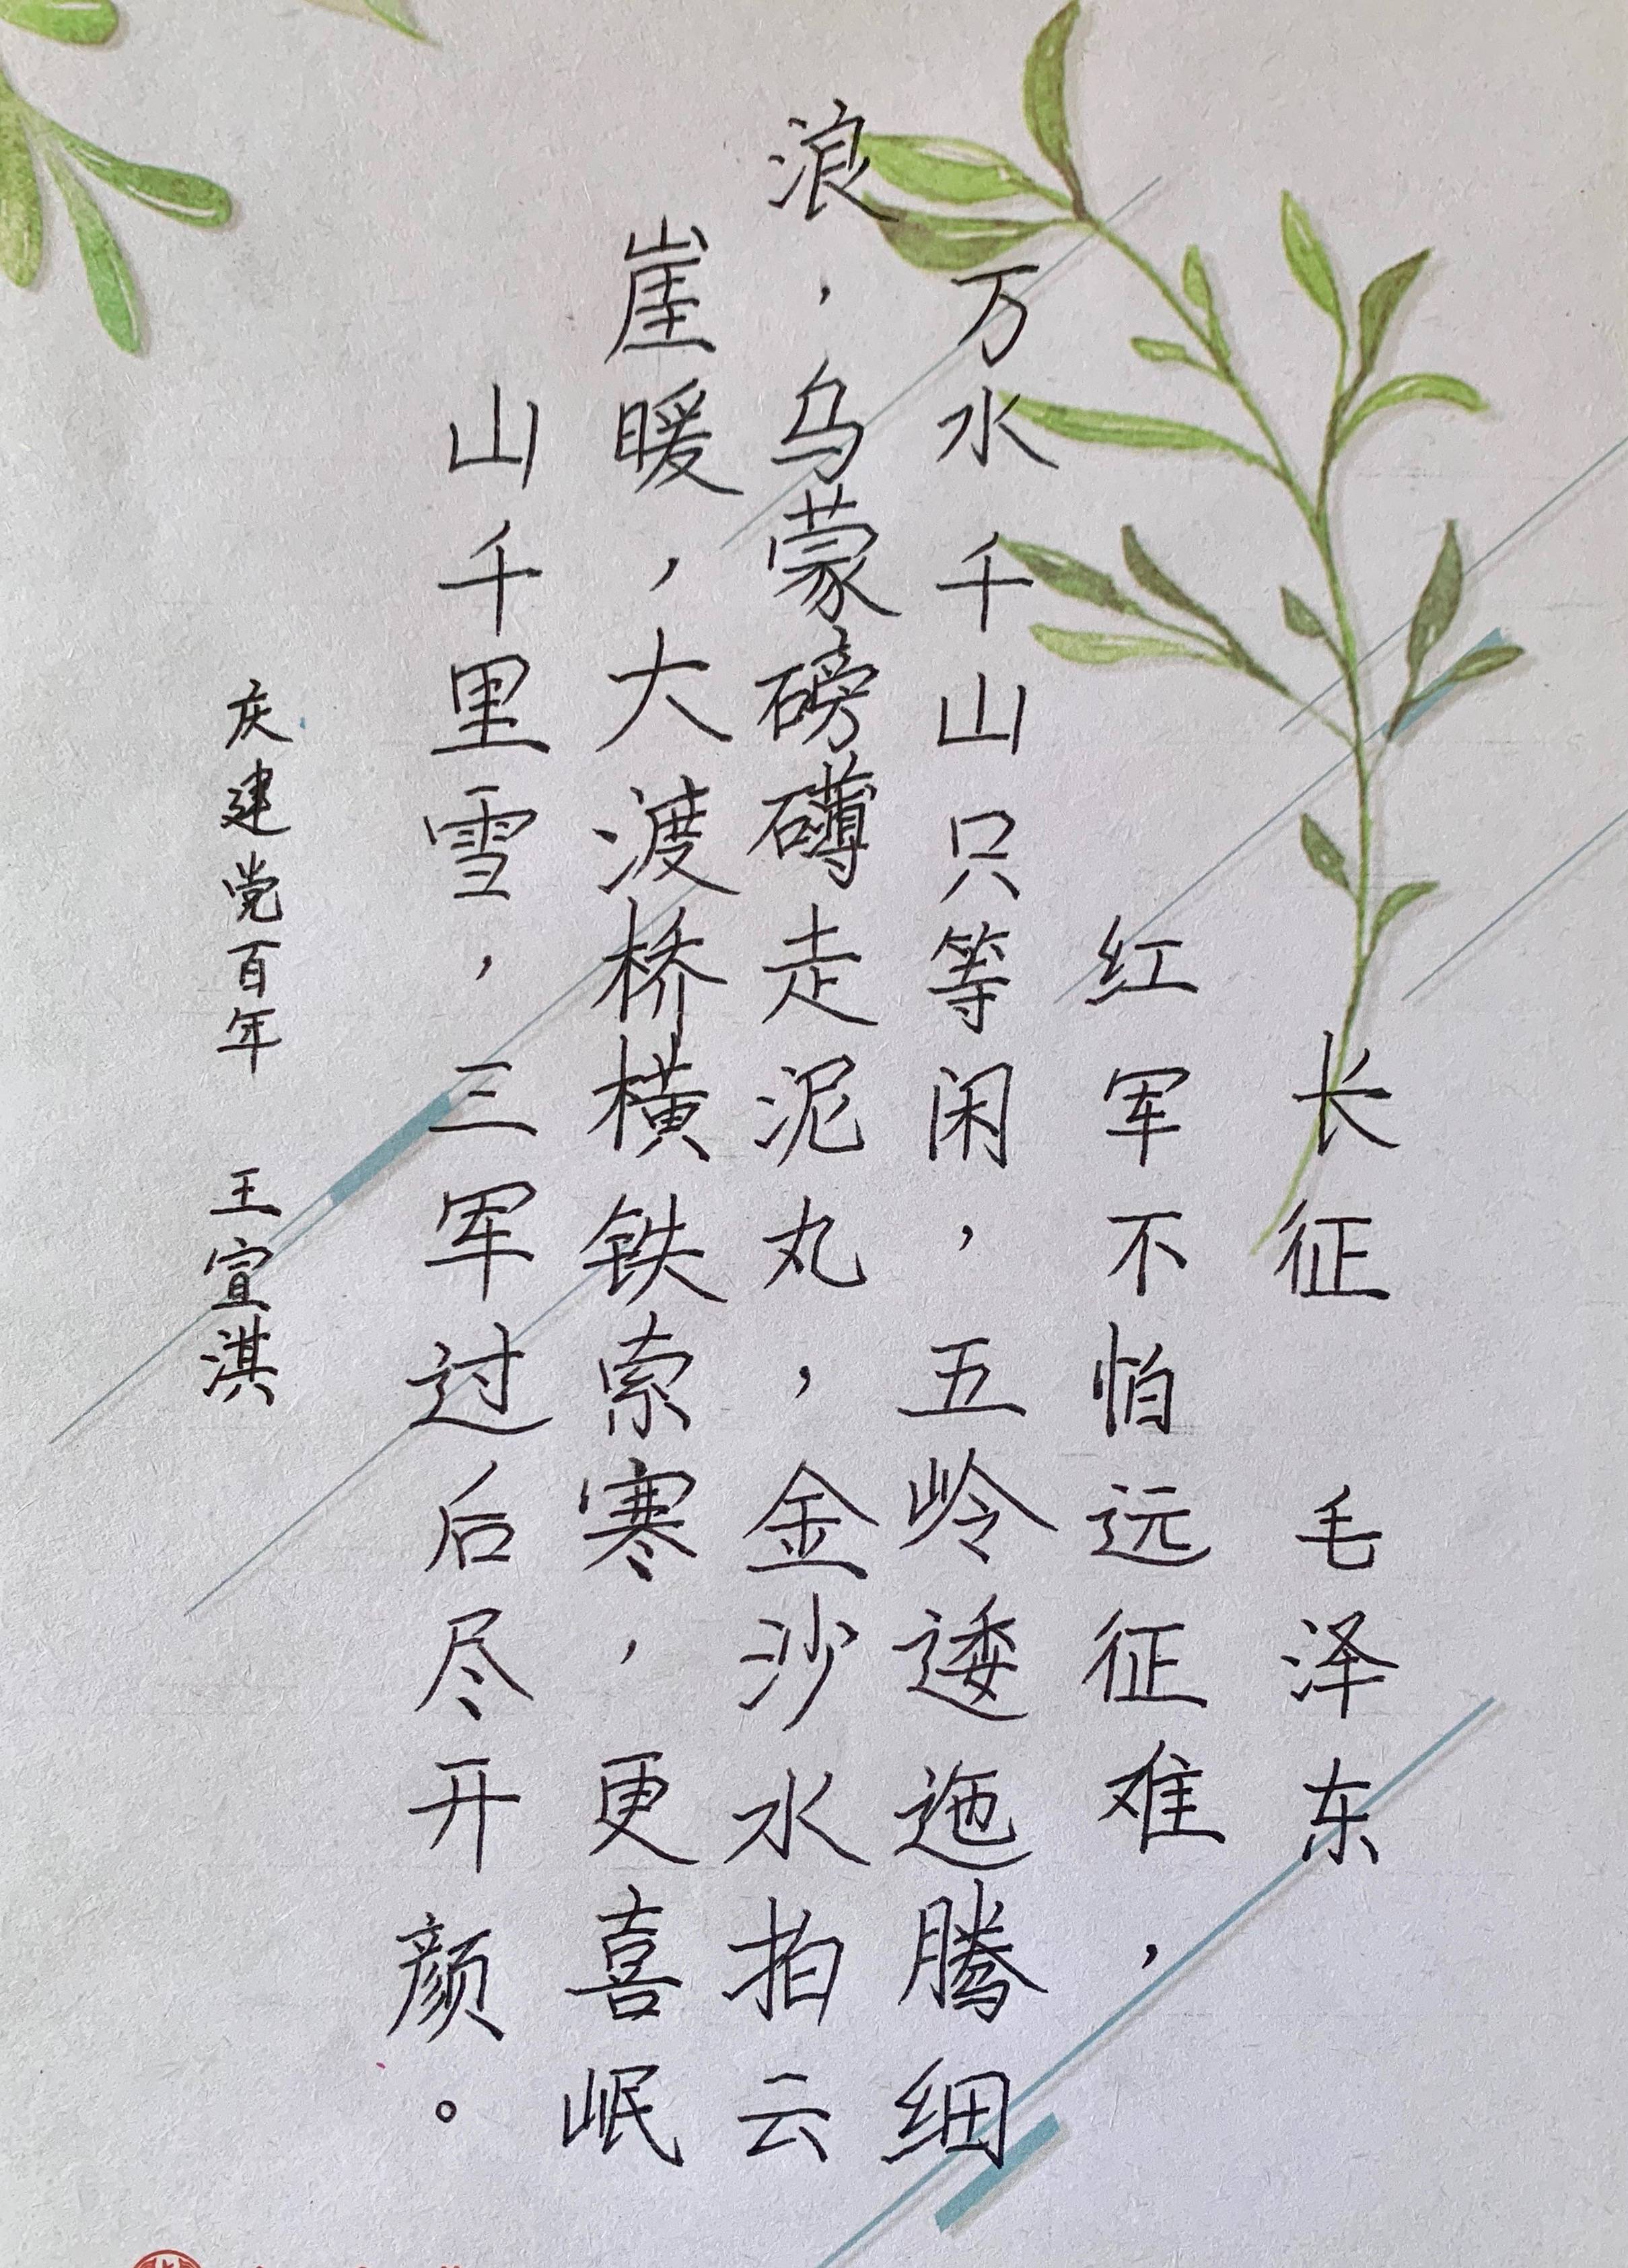 长征 毛泽东
红军不怕远征难，
万水千山只等闲，五岭逶迤腾细
浪，乌蒙磅礴走泥丸，金沙水拍云
崖暖，大渡桥横铁索寒，更喜岷
山千里雪，三军过后尽开颜。
庆建党百年 王宣淇